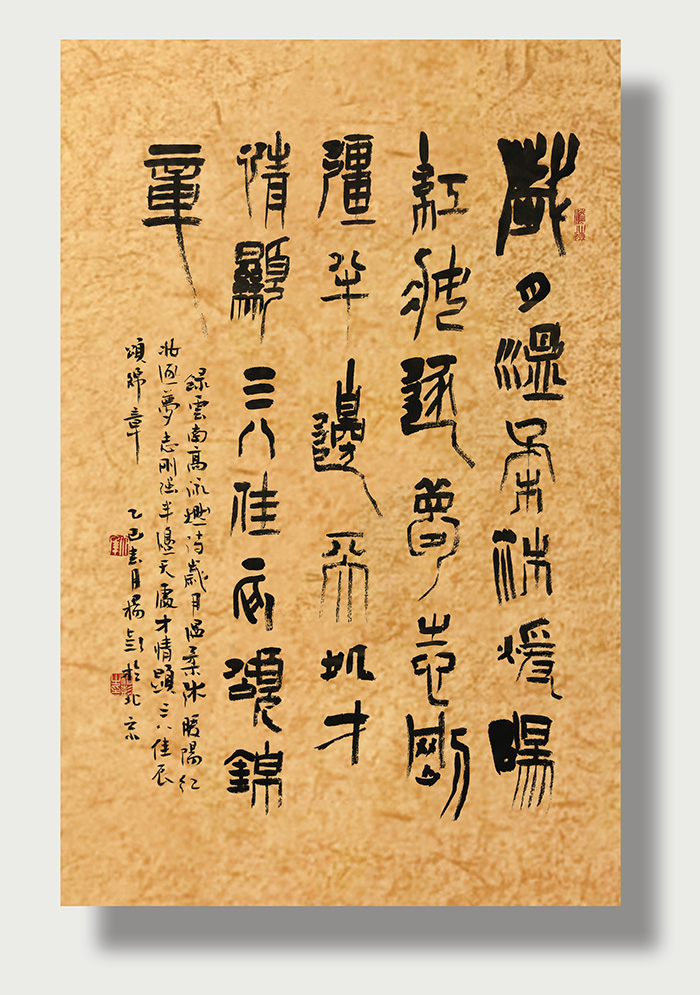 歲月溫柔沐暖陽
紅妝逐夢志剛
彊半邊天処才
情顯三八佳辰頌錦
章
錄雲南高詩歲月溫柔沐暖陽紅
妝逐夢志剛強半邊天處才情顯三八佳辰
頌錦章
乙巳春月楊彭於北京